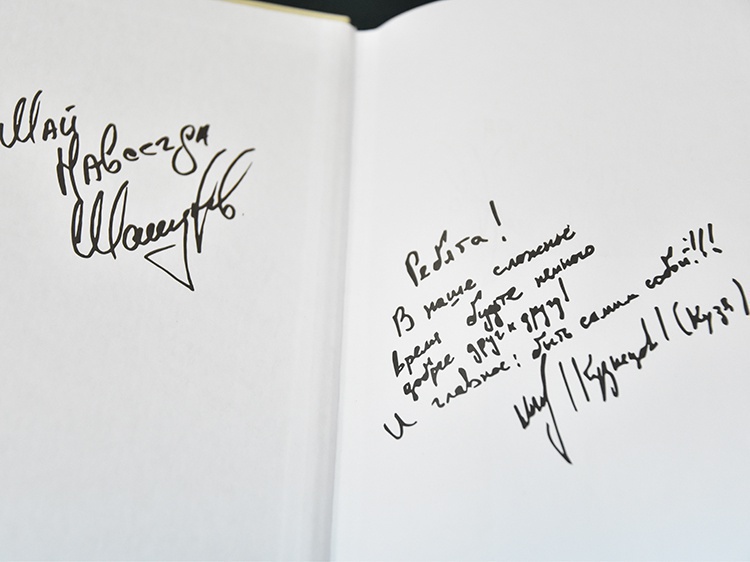 Май
навсегда
Ребята!
В наше сложные
время будьте немного
добрее друг к другу!
И главное: быть самим собой!!!
/Кузнецов/ (Кузя)